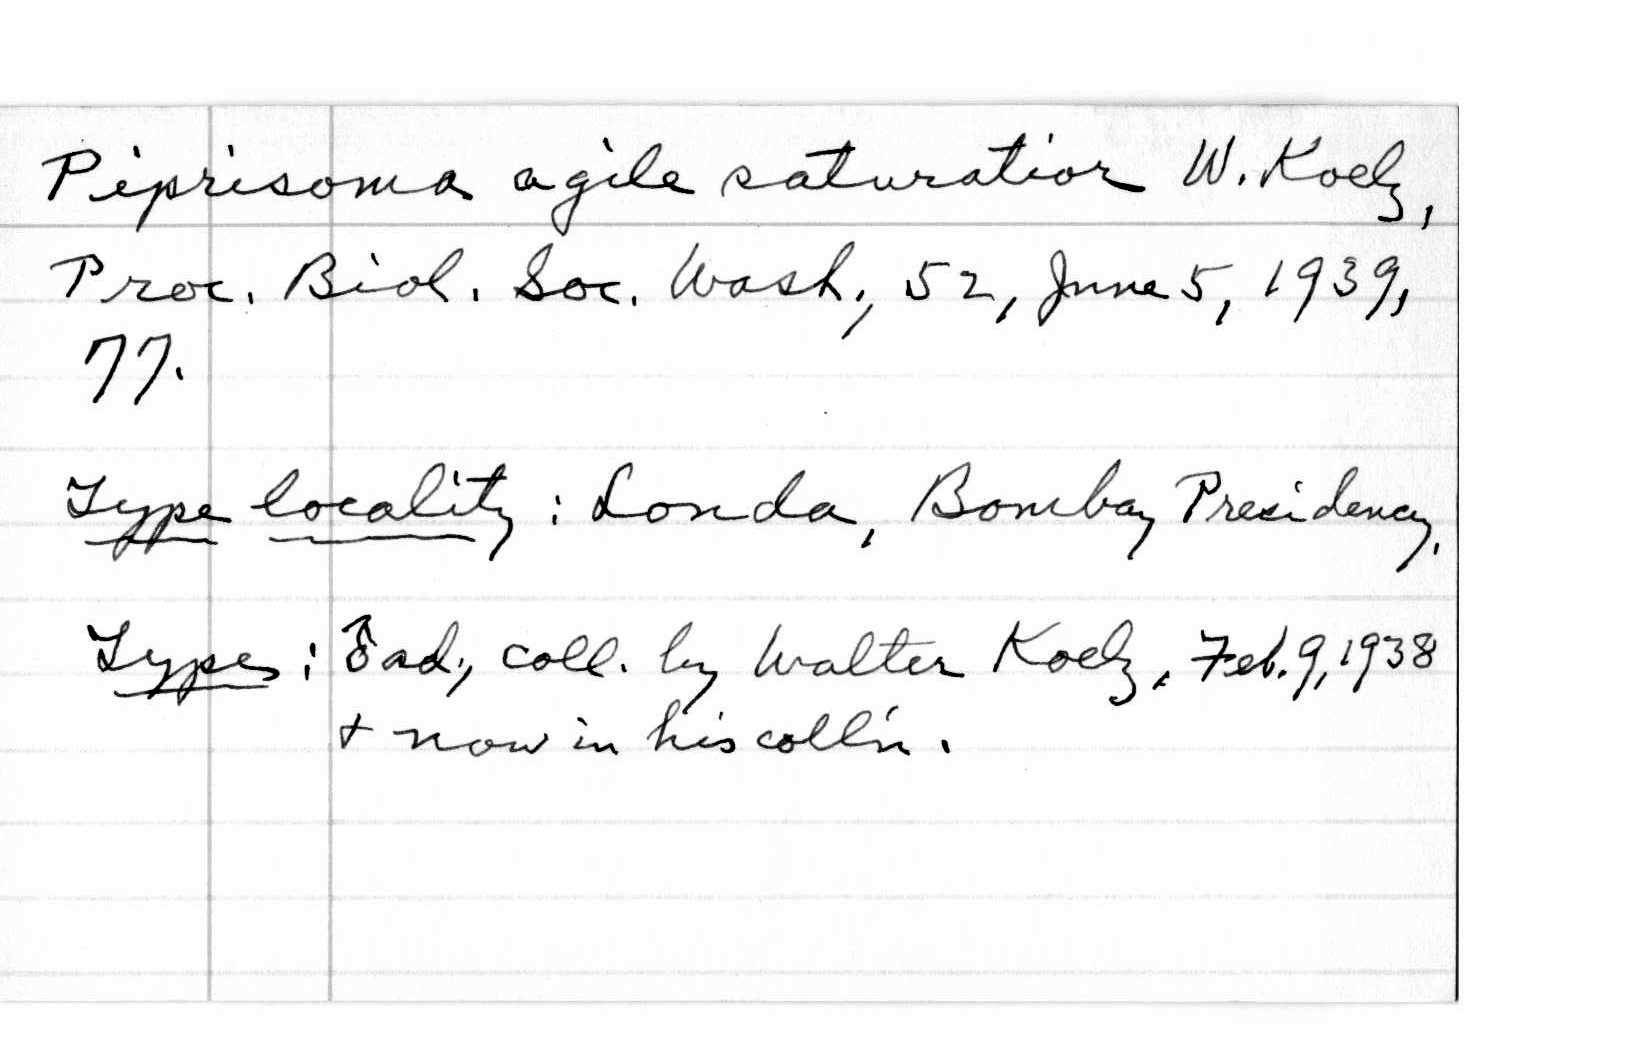 Piprisoma agile saturatior W. Koelz,
Proc. Biol. Soc. Wash., 52, June 5, 1939,
77.
Type locality: Londa, Bombay Presidency.
Type: ♂ ad., coll. by Walter Koelz, Feb. 9, 1938
+ now in his coll'n.